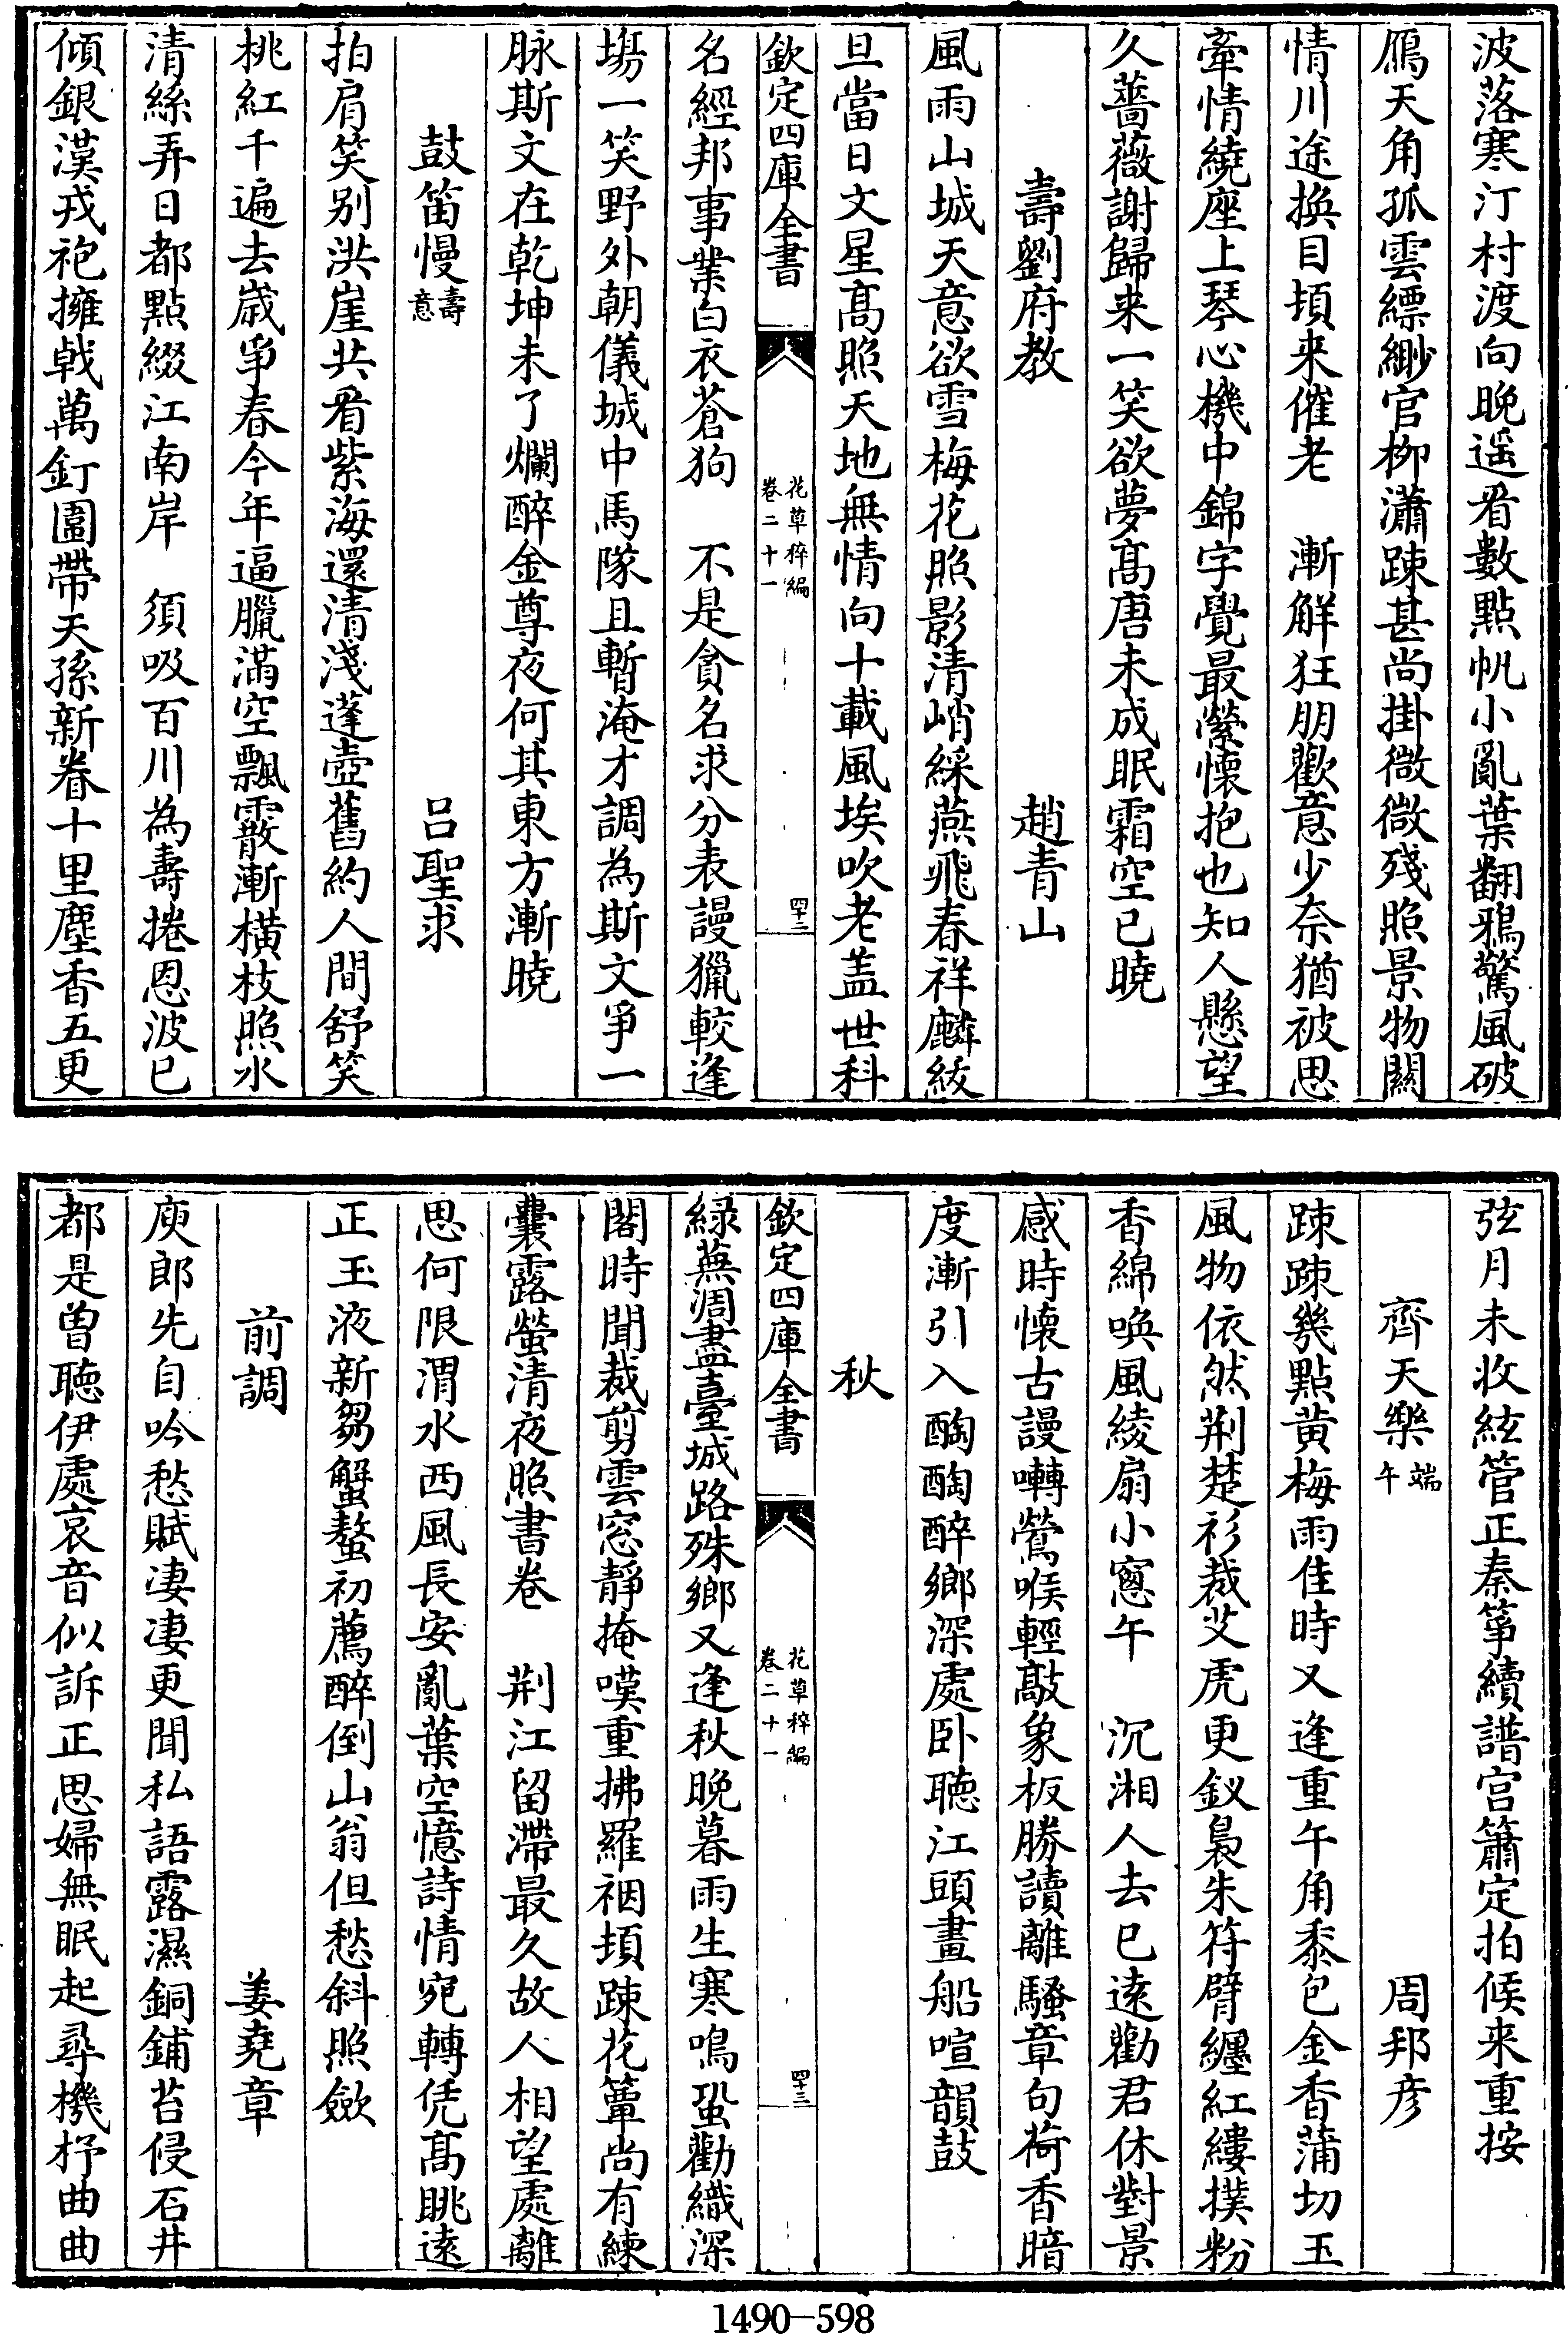 波落寒汀村渡向晚遥看數點帆小亂葉翻鴉驚風破
鴈天角孤雲縹緲官栁瀟踈甚尚掛微微殘照景物關
情川途換目頃来催老　漸解狂朋歡意少奈猶被思
牽情繞座上琴心機中錦字覺最縈懐抱也知人懸望
久薔薇謝歸来一笑欲夢髙唐未成眠霜空已曉
壽劉府教　趙青山
風雨山城天意欲雪梅花照影清峭綵燕飛春祥麟紱
旦當日文星髙照天地無情向十載風埃吹老盖世科
欽定四庫全書　花草稡編卷二十一　四十二
名經邦事業白衣蒼狗　不是貪名求分表謾獵較逢
塲一笑野外朝儀城中馬隊且暫淹才調為斯文爭一
脉斯文在乾坤未了爛醉金尊夜何其東方漸曉
鼓笛慢壽意　吕聖求
拍肩笑别洪崖共看紫海還清淺蓬壺舊約人間舒笑
桃紅千遍去歳爭春今年逼臘滿空飄霰漸橫枝照水
清絲弄日都點綴江南岸　須吸百川為壽捲恩波已
傾銀漢戎袍擁㦸萬釘圍帶天孫新眷十里塵香五更
弦月未收絃管正秦筝續譜宫簫定拍候来重按
齊天樂端午　周邦彦
踈踈幾點黄梅雨佳時又逢重午角黍包金香蒲切玉
風物依然荆楚衫裁艾虎更釵裊朱符臂纏紅縷撲粉
香綿喚風綾扇小窻午　沉湘人去已逺勸君休對景
感時懐古謾囀鶯喉輕敲象板勝讀離騷章句荷香暗
度漸引入醄醄醉鄉深處卧聴江頭畫船喧韻鼓
秋
欽定四庫全書　花草稡編卷二十一　四十三
緑蕪凋盡臺城路殊鄉又逢秋晚暮雨生寒鳴蛩勸織深
閣時聞裁剪雲窓靜掩嘆重拂羅裀頃踈花簟尚有練
囊露螢清夜照書卷　荆江留滯最久故人相望處離
思何限渭水西風長安亂葉空憶詩情宛轉凭髙眺逺
正玉液新篘蟹螯初薦醉倒山翁但愁斜照歛
前調　姜堯章
庾郎先自吟愁賦凄凄更聞私語露濕銅鋪苔侵石井
都是曽聴伊處哀音似訴正思婦無眠起尋機杼曲曲
1490-598